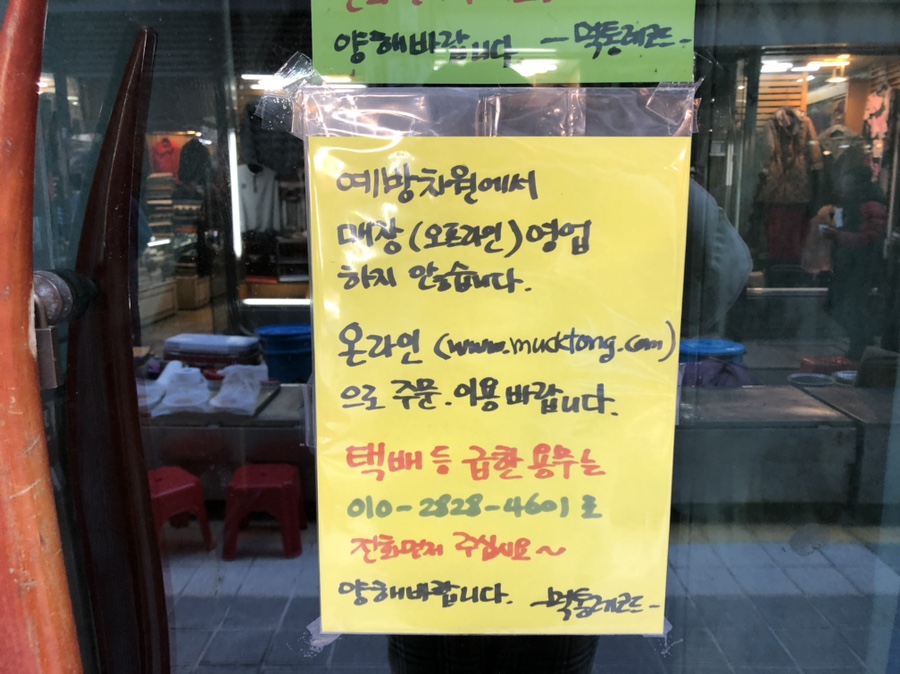 양해바랍니다. -먹통레코드-
예방차원에서
매장(오프라인)영업
하지 않습니다.
온라인 (www.mucktong.com)
으로 주문.이용바랍니다.
택배 등 급한 용무는
010-2828-4601로
전화먼저 주십시요~
양해바랍니다. -먹통레코드-